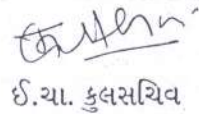 ઈ.ચા. કુલસચિવ